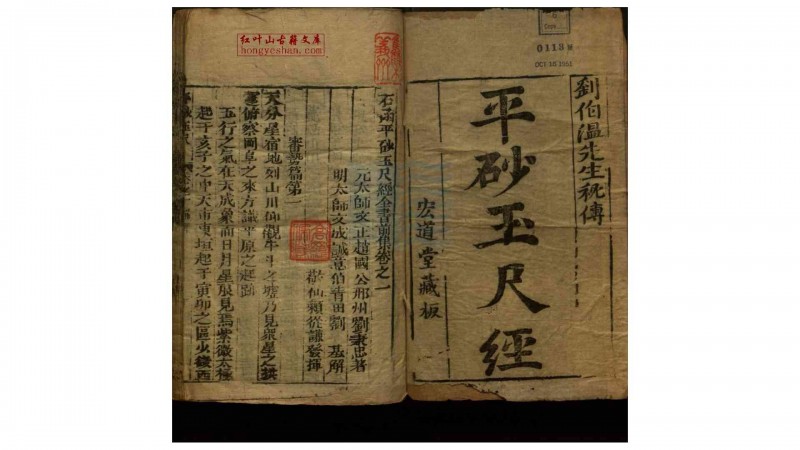 劉伯溫先生秘傳
平砂玉尺經
宏道堂藏板
0113
OCT 16 1950
红叶山古籍文库
hongyeshan.com
石函平砂玉尺經全書前集卷之一
元太師文正趙國公邢州劉秉忠著
明太師文成誠意伯青田劉基解
賴從謙發揮
審勢篇第一
天分星宿地列山川仰觀牛斗之墟乃見衆星之拱
運俯察岡阜之來方識平原之起跡
五行之氣在天成象而日月星辰見焉紫微太極
起于亥子之中天市東垣起于寅卯之區火鎮西